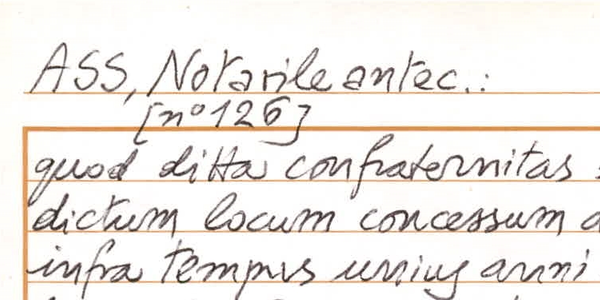 ASS, Notarile antec.:
[n° 126]
quod ditta confraternitas
dictum locum concessum
infra tempus unius anni